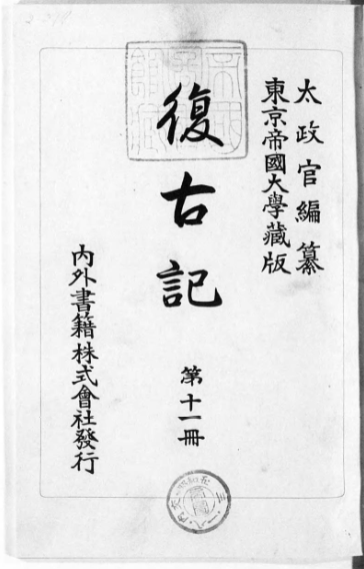 太政官編纂
東京帝國大學藏版
復古記
第十一冊
內外書籍株式會社發行